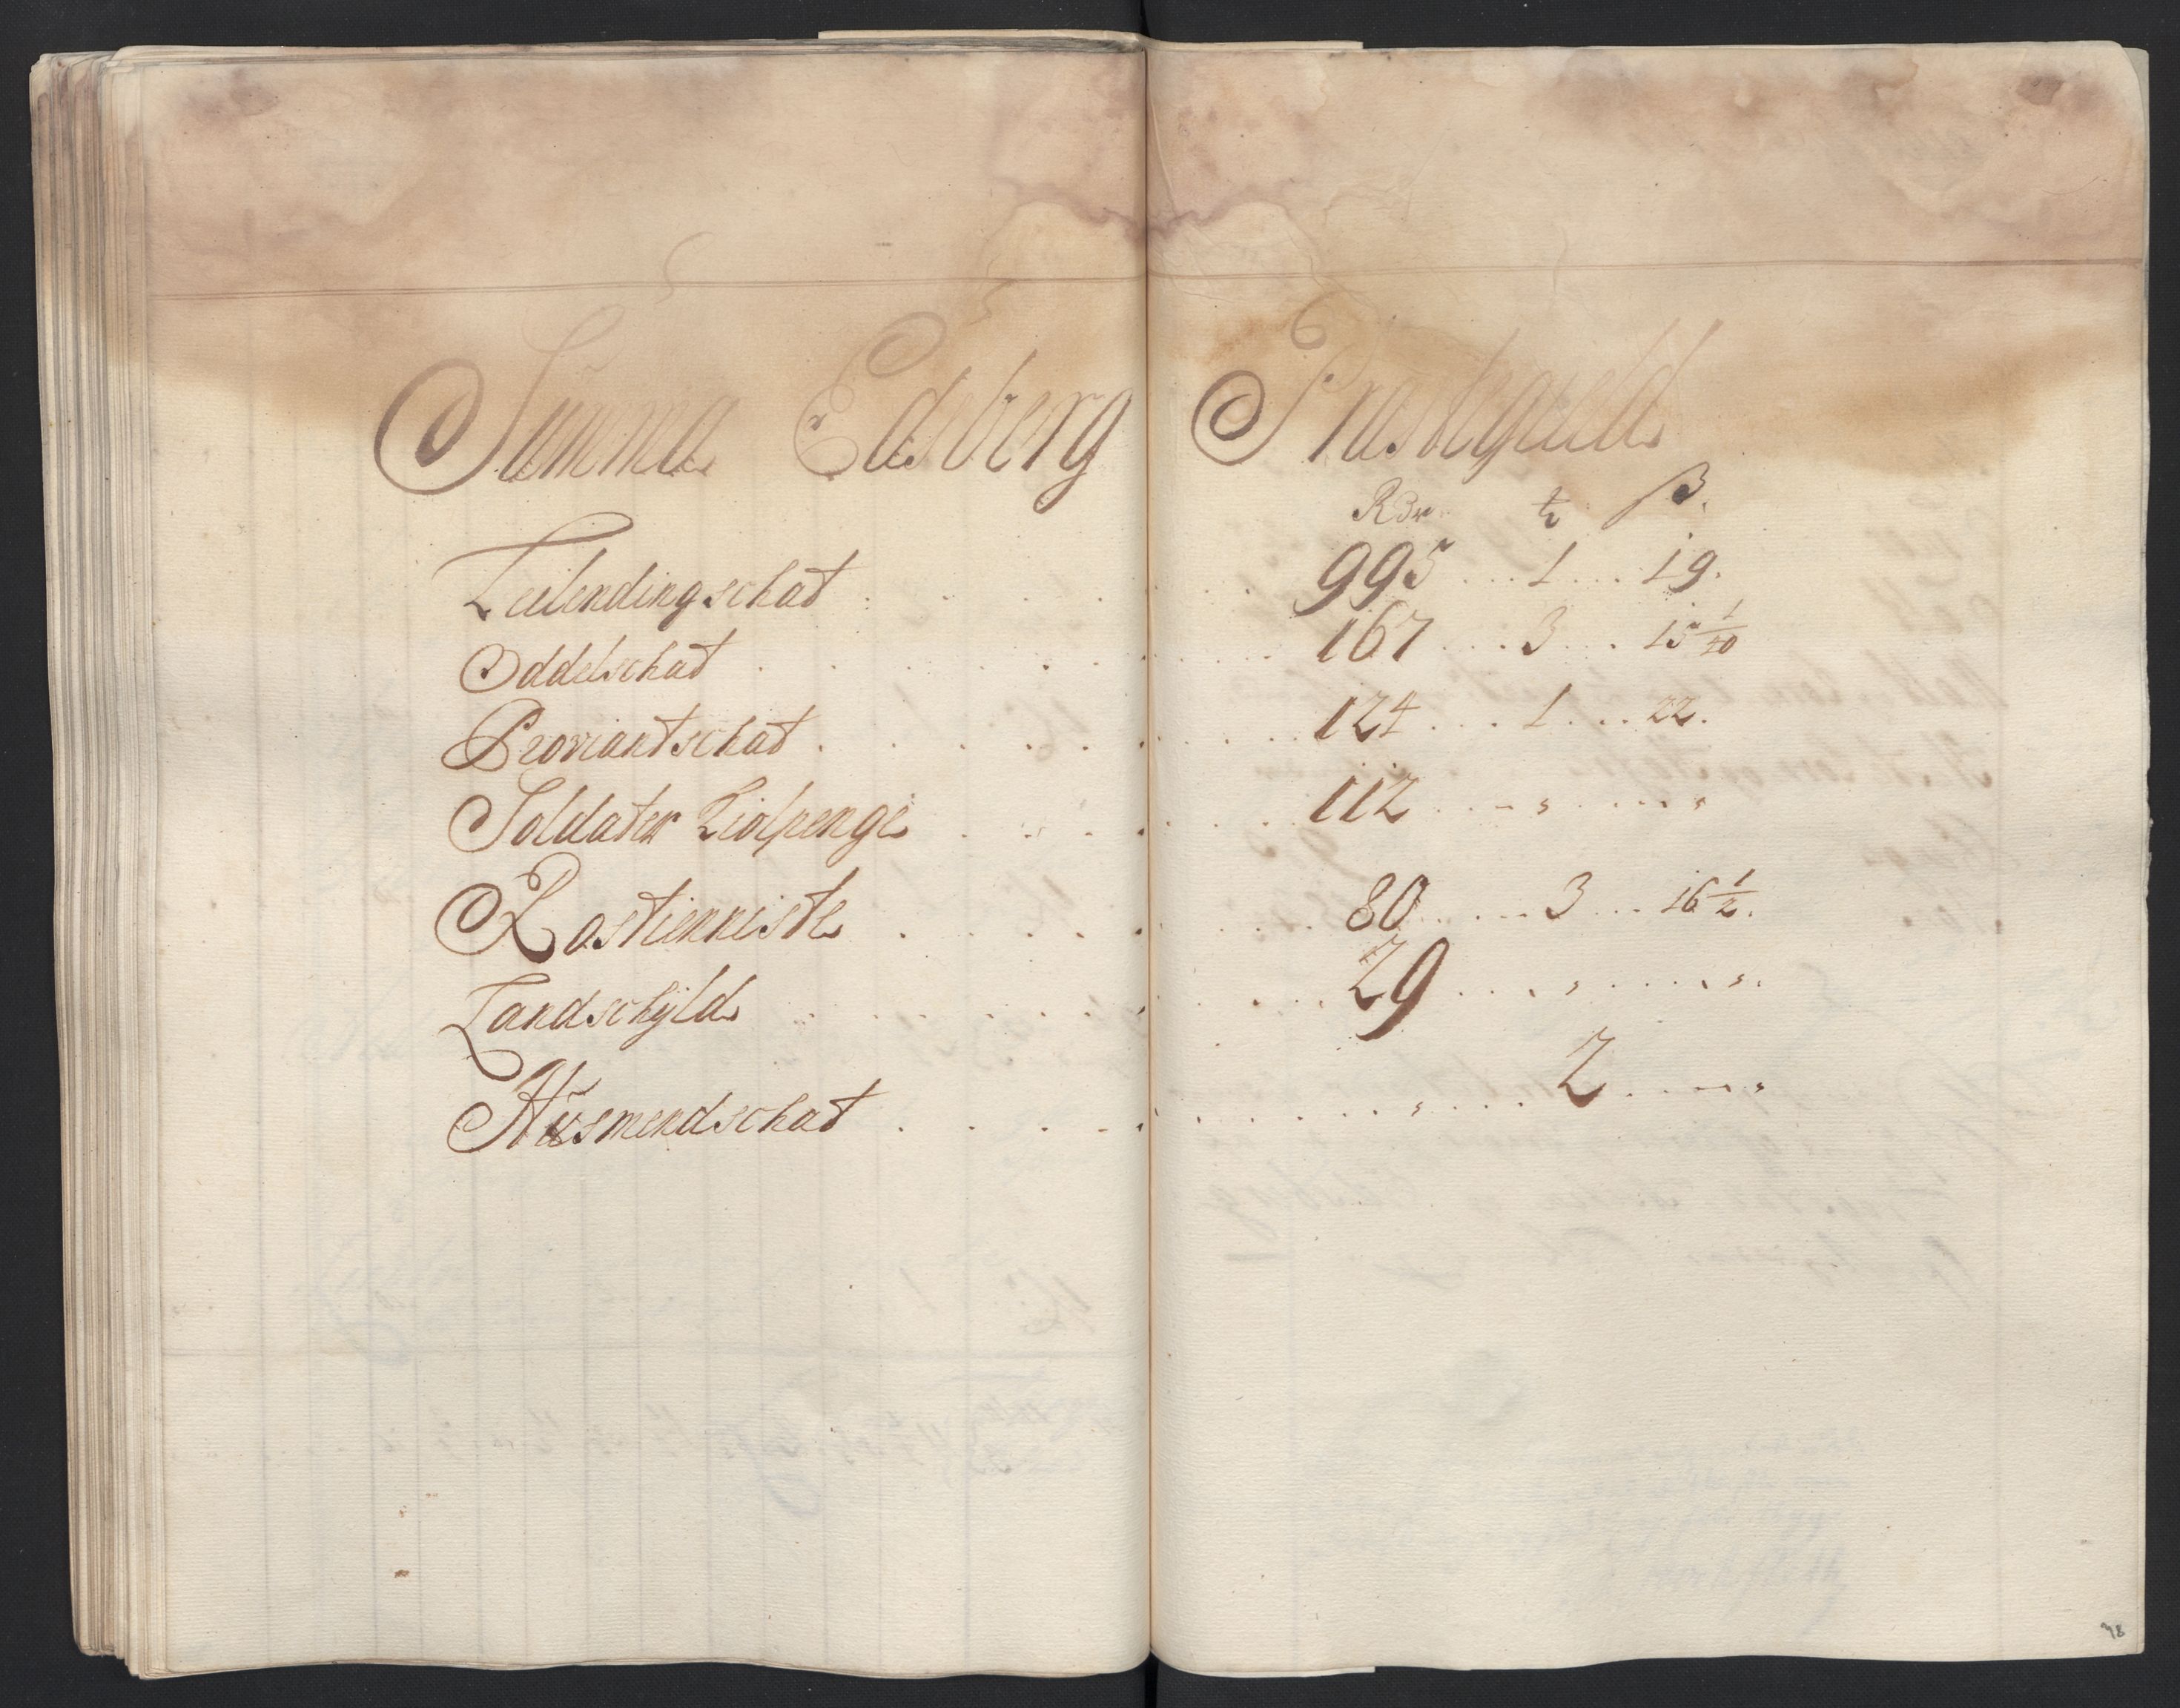 Summa Edsberg Præstegield
Rdr ß.
Leilendingschat . . . . . 995 . . . 1 . . . 19.
Oddelschat . . . . . 167 . . . 3 . . . 15 1/10
Proviantschat . . . . . 124 . . . 1 . . . 22.
Soldater Kiolpenge . . . . . 112 . . . „ . . . „
Rostienniste . . . . . 80 . . . 3 . . . 16 1/2.
Landschyld . . . . . 29 . . . „ . . . „
Husmendschat . . . . . „ . . . 2 . . . „
98